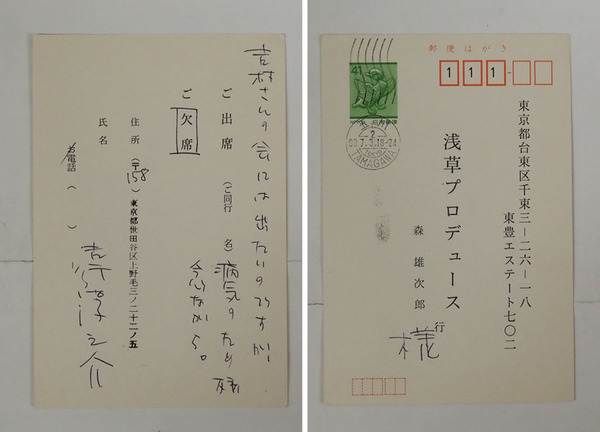 吉村さんの会には出たいのですが、
ご出席 (ご同行 名)
病気のため残
念ながら。
ご欠席
住所 (〒158) 東京都世田谷区上野毛三ノ二十二ノ五
氏名 吉行淳之介
お電話 ( )
郵便はがき
111-
41
TAMAGAWA
東京都台東区千束三―二六―一八
東豊エステート七〇二
浅草プロデュース
森雄次郎
行
様